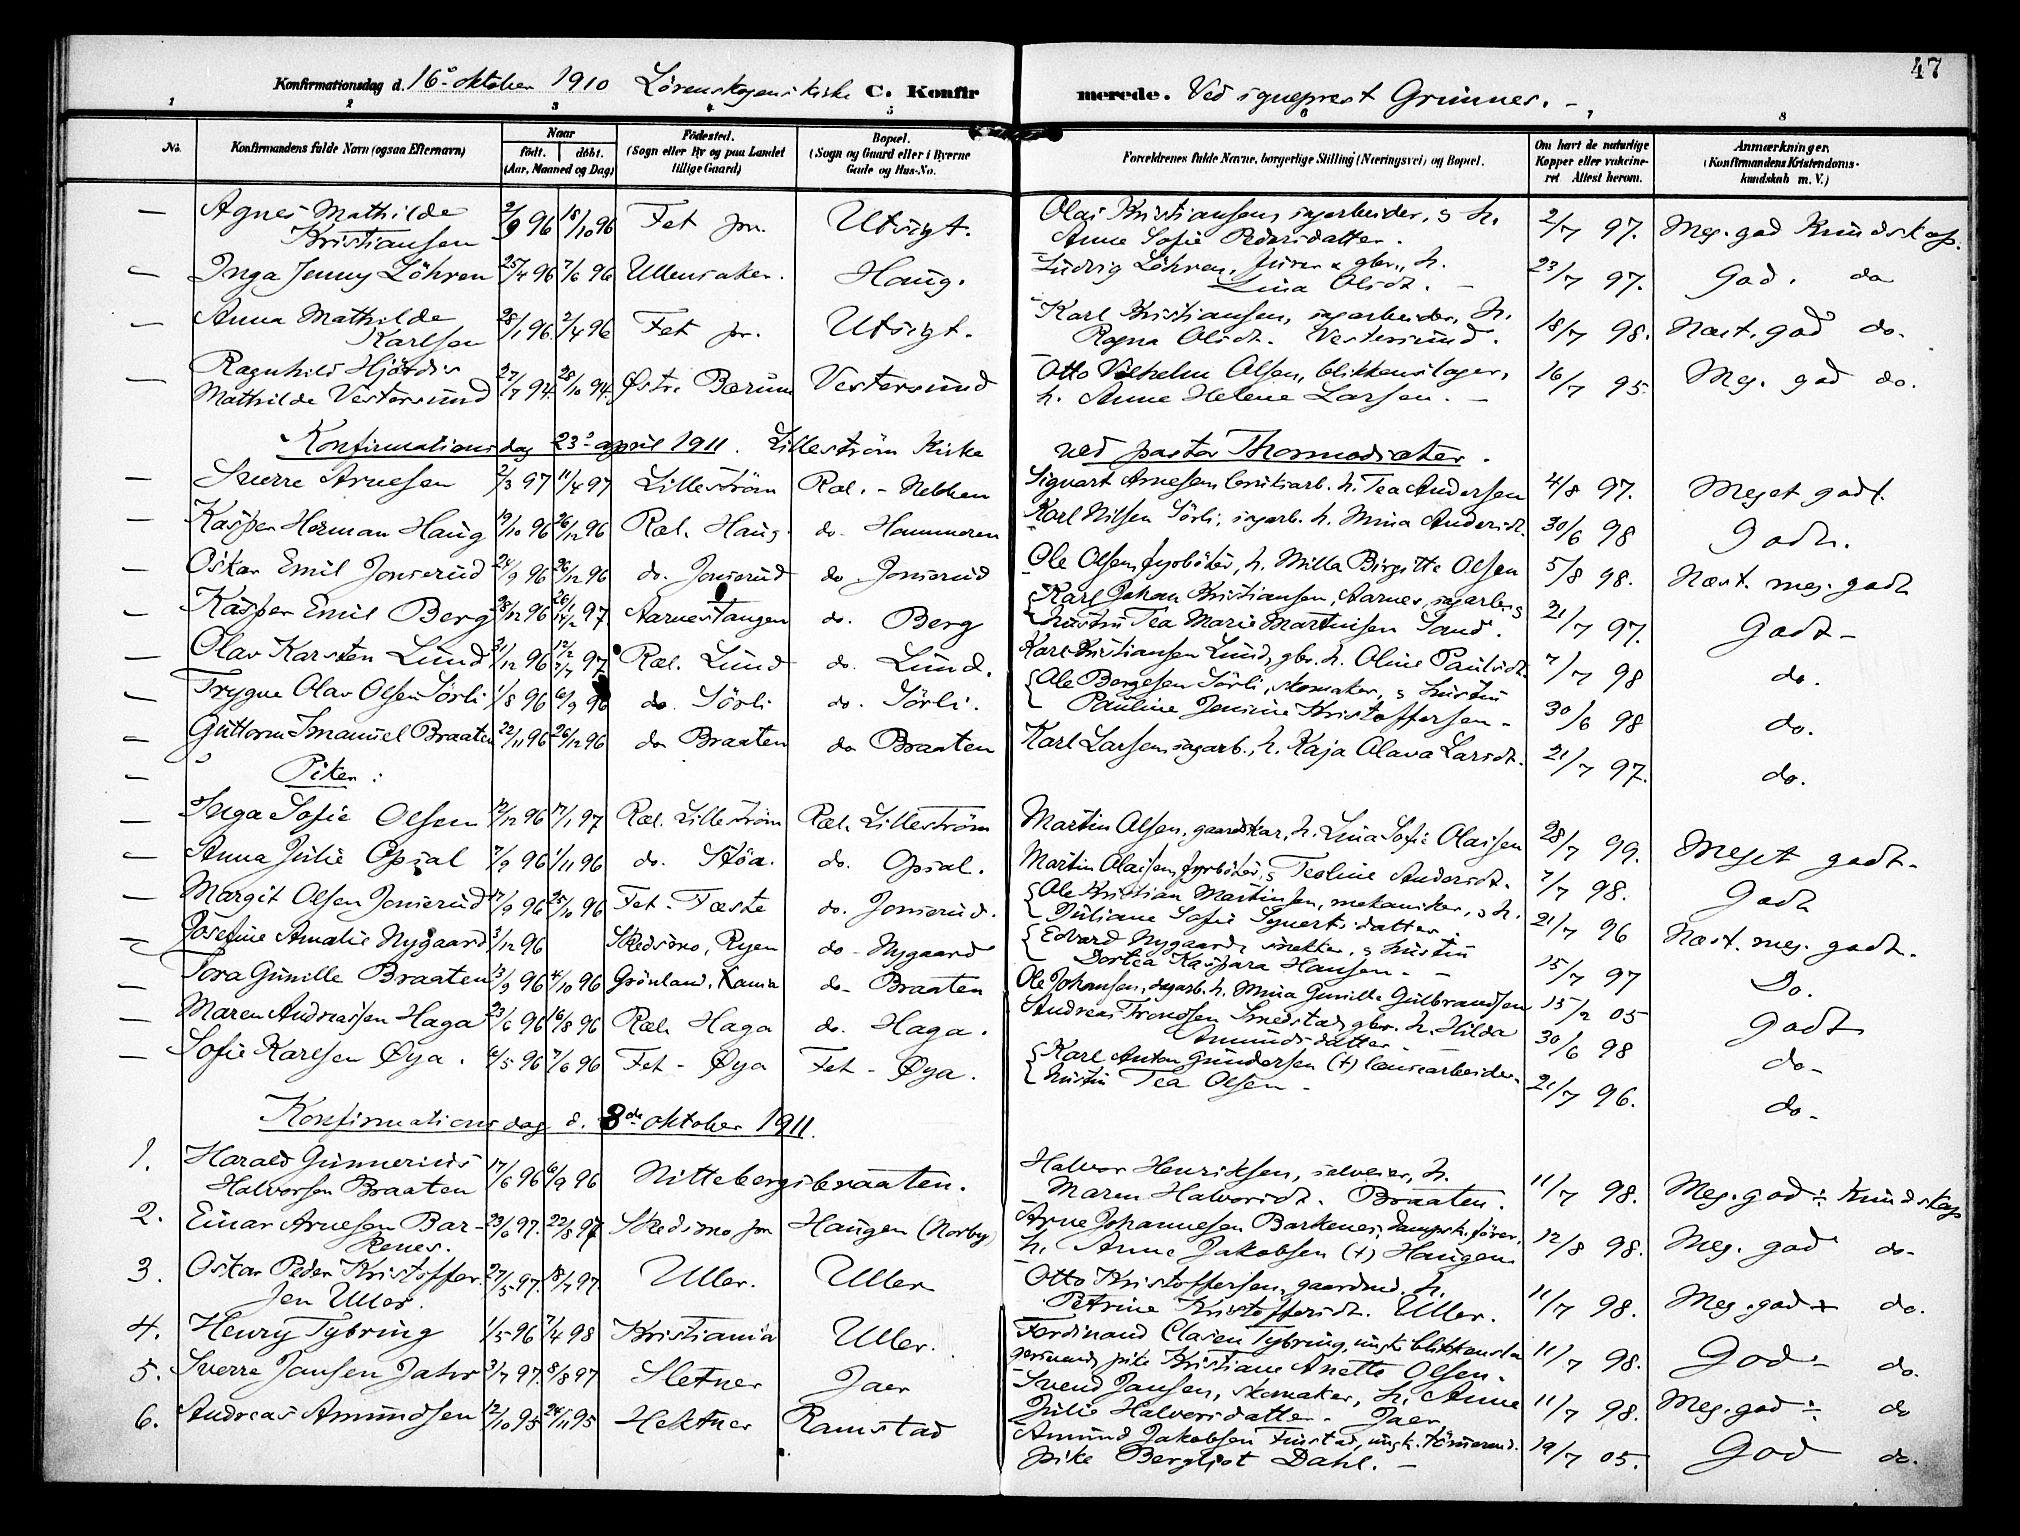 47
Konfirmationsdag d. 16de oktober 1910 Lörenskogens kirke C. Konfirmerede. Ved sogneprest Grimnes. -
1 2 3 4 5 6 7 8
No. Konfirmandens fulde Navn (ogsaa Efternavn) Naar født. døbt. (Aar, Maaned og Dag) Fødested. (Sogn eller By og paa Landet tillige Gaard) Bopæl. (Sogn og Gaard eller i Byerne Gade og Hus-No. Forældrenes fulde Navne, borgerlige Stilling (Næringsvei) og Bopæl. Om havt de naturlige Kopper eller vakcineret Attest herom. Anmærkninger. (Konfirmandens Kristendomskundskab m. V.)
— Agnes Mathilde Kristiansen 2/9 96 18/10 96 Fet pr. Utsigt. Olai Kristiansen, sagarbeider, & h. Anne Sofie Pedersdatter. 2/7 97. Meg. god Kundskap.
— Inga Jenny Löhren 25/4 96 7/6 96 Ullensaker. Haug. Ludvig Löhren, murer & gbr., h. Lina Olsdt. — 23/7 97. God. do
— Anna Mathilde Karlsen 28/1 96 2/4 96 Fet pr. Utsigt. Karl Kristiansen, sagarbeider, h. Ragna Olsdt. Vestersund. 18/7 98. Næst. god do.
— Ragnhild Hjördis Mathilde Vestersund 27/7 94. 28/10 94. Østre Bærum Vestersund Otto Vilhelm Olsen, blikkenslager, h. Anne Helene Larsen. — 16/7 95. Meg. god do.
Konfirmationsdag 23de april 1911. Lilleström Kirke ved pastor Thormodsæter.
— Sverre Arnesen 2/3 97 11/4 97 Lilleström Ræl. - Nebben Sigvart Arnesen, bruksarb. h. Tea Andersen 4/8 97. Meget godt.
— Kasper Herman Haug 19/10 96 26/12 96 Ræl. Haug. do. Hammeren Karl Nilsen Sörli, sagarb. h. Mina Andersdt. 30/6 98 Godt.
— Oskar Emil Jonserud 24/9 96 26/12 96 do. Jonserud do. Jonserud Ole Olsen, fyrböder, h. Milla Birgitte Olsen 5/8 98. Næst. meg. godt
— Kasper Emil Berg 28/12 96 26/1 14/2 97. Aarnestangen do. Berg Karl Johan Kristiansen, Aarnes, sagarb. & hustru Tea Marie Martinsen Sand. 21/7 97. Godt -
— Olav Karsten Lund 21/12 96 12/2 2/7 97 Ræl. Lund do. Lund. Karl Kristiansen Lund, gbr. h. Oline Paulsdt. 7/7 98 do.
— Trygve Olav Olsen Sörli 1/8 96 6/9 96 do. Sörli do. Sörli. Ole Bergesen Sörli, skomaker, & hustru Pauline Jensine Kristoffersen - 30/6 98 do.
— Guttorm Imanuel Braaten 22/11 96 26/12 96 do Braaten do Braaten Karl Larsen, sagarb., h. Kaja Olava Larsdt. 21/7 97. do.
— Piker:
— Inga Sofie Olsen 12/12 96 17/1 97 Ræl. Lilleström Ræl. Lilleström Martin Olsen, gaardskar, h. Lina Sofie Olaisen 28/7 99. Meget godt.
— Anna Julie Opsal 7/9 96 1/11 96 do. Støa. do. Opsal. Martin Olaisen, fyrböder, & Teoline Andersdt. 7/7 98. Godt
— Margit Olsen Jonserud 17/9 96 25/10 96 Fet - Fæste do. Jonserud. Ole Kristian Martinsen, mekaniker, & h. Juliane Sofie Syvertsdatter. 21/7 96 Næst. meg. godt.
— Josefine Amalie Nygaard 3/12 96 Skedsmo, Ryen do - Nygaard Edvard Nygaard, snekker, & hustru Dortea Kaspara Hansen. — 15/7 97 Do.
— Tora Gunille Braaten 13/9 96 4/10 96 Grönland, Xania do - Braaten Ole Johansen, dagarb. h. Mina Gunille Gulbrandsen 15/2 05 Godt
— Maren Andreassen Haga 23/6 96 16/8 96 Ræl. Haga do. Haga. Andreas Trondsen Smedstad, gbr. h. Hilda Amundsdatter. 30/6 98 do -
— Sofie Karlsen Øya. 6/5 96 7/6 96 Fet - Øya Fet - Øya. Karl Anton Gundersen (+) lænsearbeider. hustru Tea Olsen - 21/7 96. do -
Konfirmationsdag d. 8de oktober 1911.
1. Harald Gunnerius Halvorsen Braaten 17/6 96 6/9 96 Nittebergsbraaten. Halvor Henriksen, selveier, h. Maren Halvorsdt. Braaten. 11/7 98. Meg. god ÷ Kundskap
2. Einar Arnesen Barkenes. 23/6 97. 22/8 97 Skedsmo pr Haugen (Norby) Arne Johannesen Barkenes, dampsk.förer, h. Anne Jakobsen (+) Haugen 12/8 98. Meg. god do -
3. Oskar Peder Kristoffersen Uller. 27/5 97. 18/7 97 Uller. Uller Otto Kristoffersen, gaardmd. h. Petrine Kristoffersdt. Uller. 11/7 98. Meg. god ÷ do.
4. Henry Tybring 1/5 96 7/4 98 Kristiania Uller. Ferdinand Clasen Tybring, ungk. blikkenslagersvend, pike Kristiane Anette Olsen. 11/7 98. God ÷ do.
5. Sverre Jansen Jahr 3/7 97. 8/8 97 Sletner Jaer Svend Jansen, skomaker, h. Anne Julie Halvorsdatter. Jaer 11/7 98. Meg. god ÷ do
6. Andreas Amundsen 12/10 95 24/11 95 Hektner Ramstad Amund Jakobsen Tuistad, ungk. tömmermd. pike Bergljot Dahl. — 19/7 05. God do.